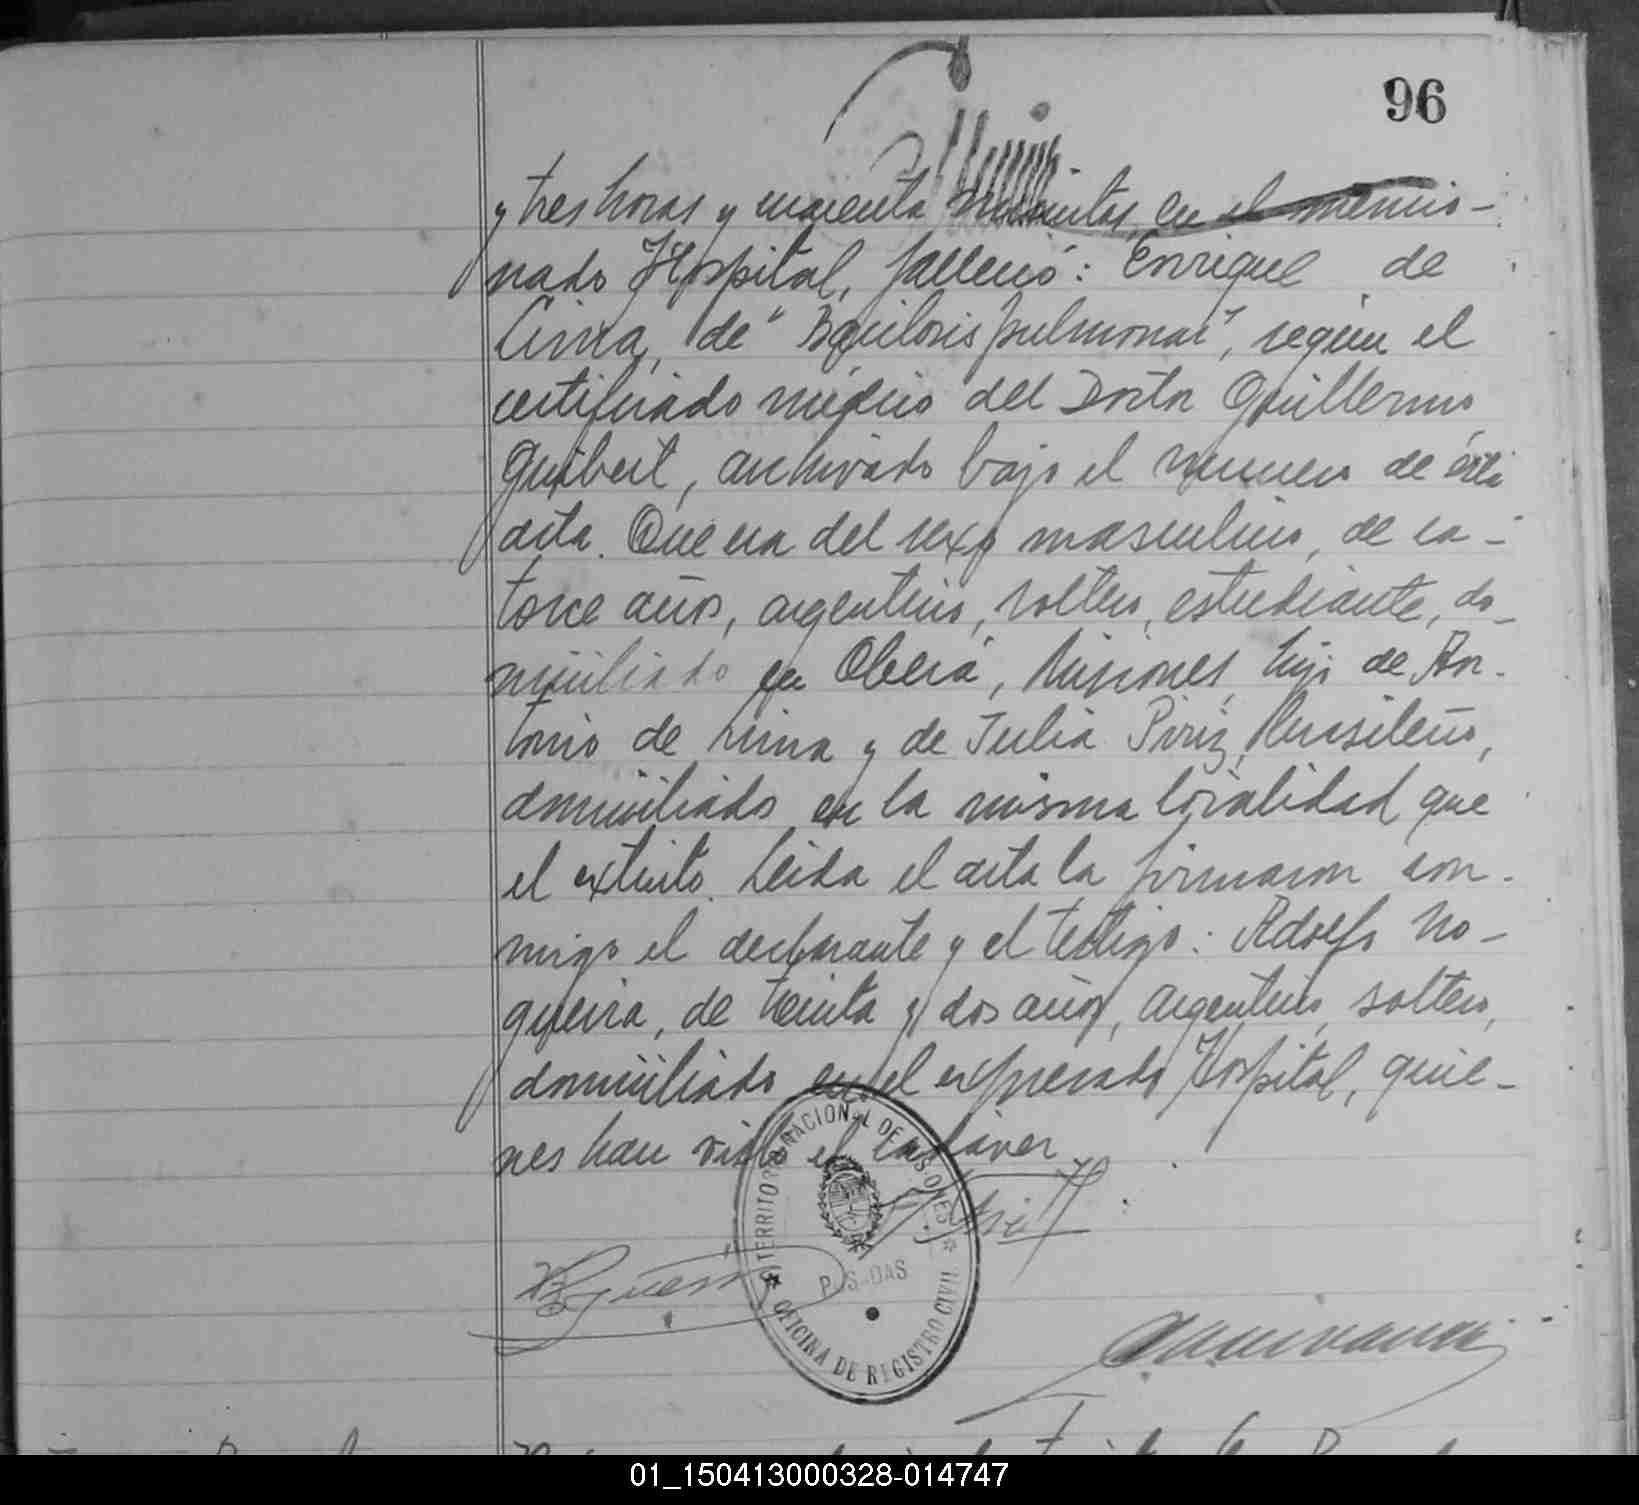 96
y tres horas y cuarenta minutos, en el mencio-
nado Hospital, falleció: Enrique de
Lima, de "Bacilosis pulmonar", según el
certificado médico del Doctor Guillermo
Guibert, archivado bajo el número de ésta
acta. Que era del sexo masculino, de ca-
torce años, argentino, soltero, estudiante, do-
miciliado en Oberá, Misiones, hijo de An-
tonio de Lima y de Julia Piriz, brasileño,
domiciliado en la misma localidad que
el extinto. Leida el acta la firmaron con-
migo el declarante y el testigo: Adolfo No-
gueira, de treinta y dos años, argentino, soltero,
domiciliado en el expresado Hospital, quie-
nes han visto el cadáver
TERRITORIO NACIONAL DE MISIONES
POSADAS
OFICINA DE REGISTRO CIVIL
01_150413000328-014747